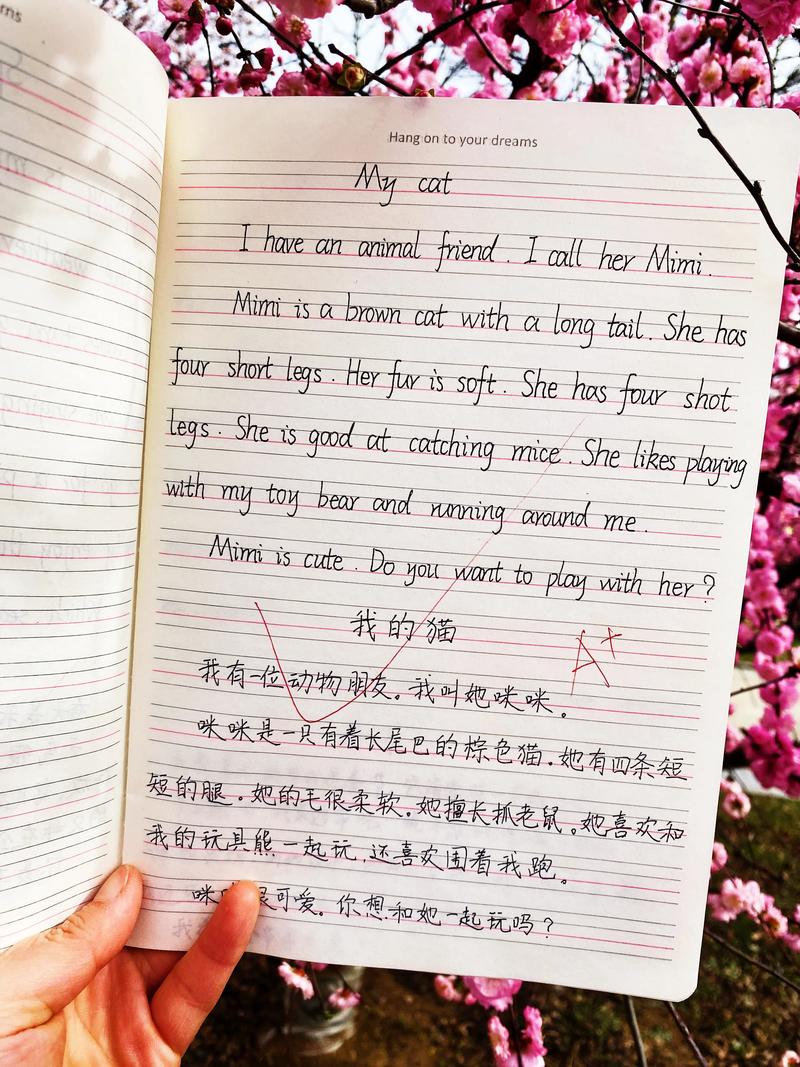 Hang on to your dreams
My cat
I have an animal friend. I call her Mimi.
Mimi is a brown cat with a long tail. She has
four short legs. Her fur is soft. She has four shot
legs. She is good at catching mice. She likes playing
with my toy bear and running around me.
Mimi is cute. Do you want to play with her?
我的猫
A+
我有一位动物朋友。我叫她咪咪。
咪咪是一只有着长尾巴的棕色猫。她有四条短
短的腿。她的毛很柔软。她擅长抓老鼠。她喜欢和
我的玩具熊一起玩,还喜欢围着我跑。
咪咪很可爱。你想和她一起玩吗?